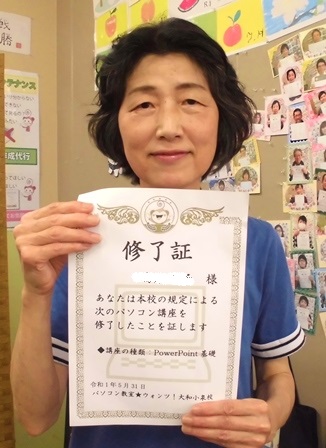 修了証
様
あなたは本校の規定による
次のパソコン講座を
修了したことを証します
◆講座の種類：PowerPoint 基礎
令和1年5月31日
パソコン教室★ウォンツ！大和小泉校
成代行